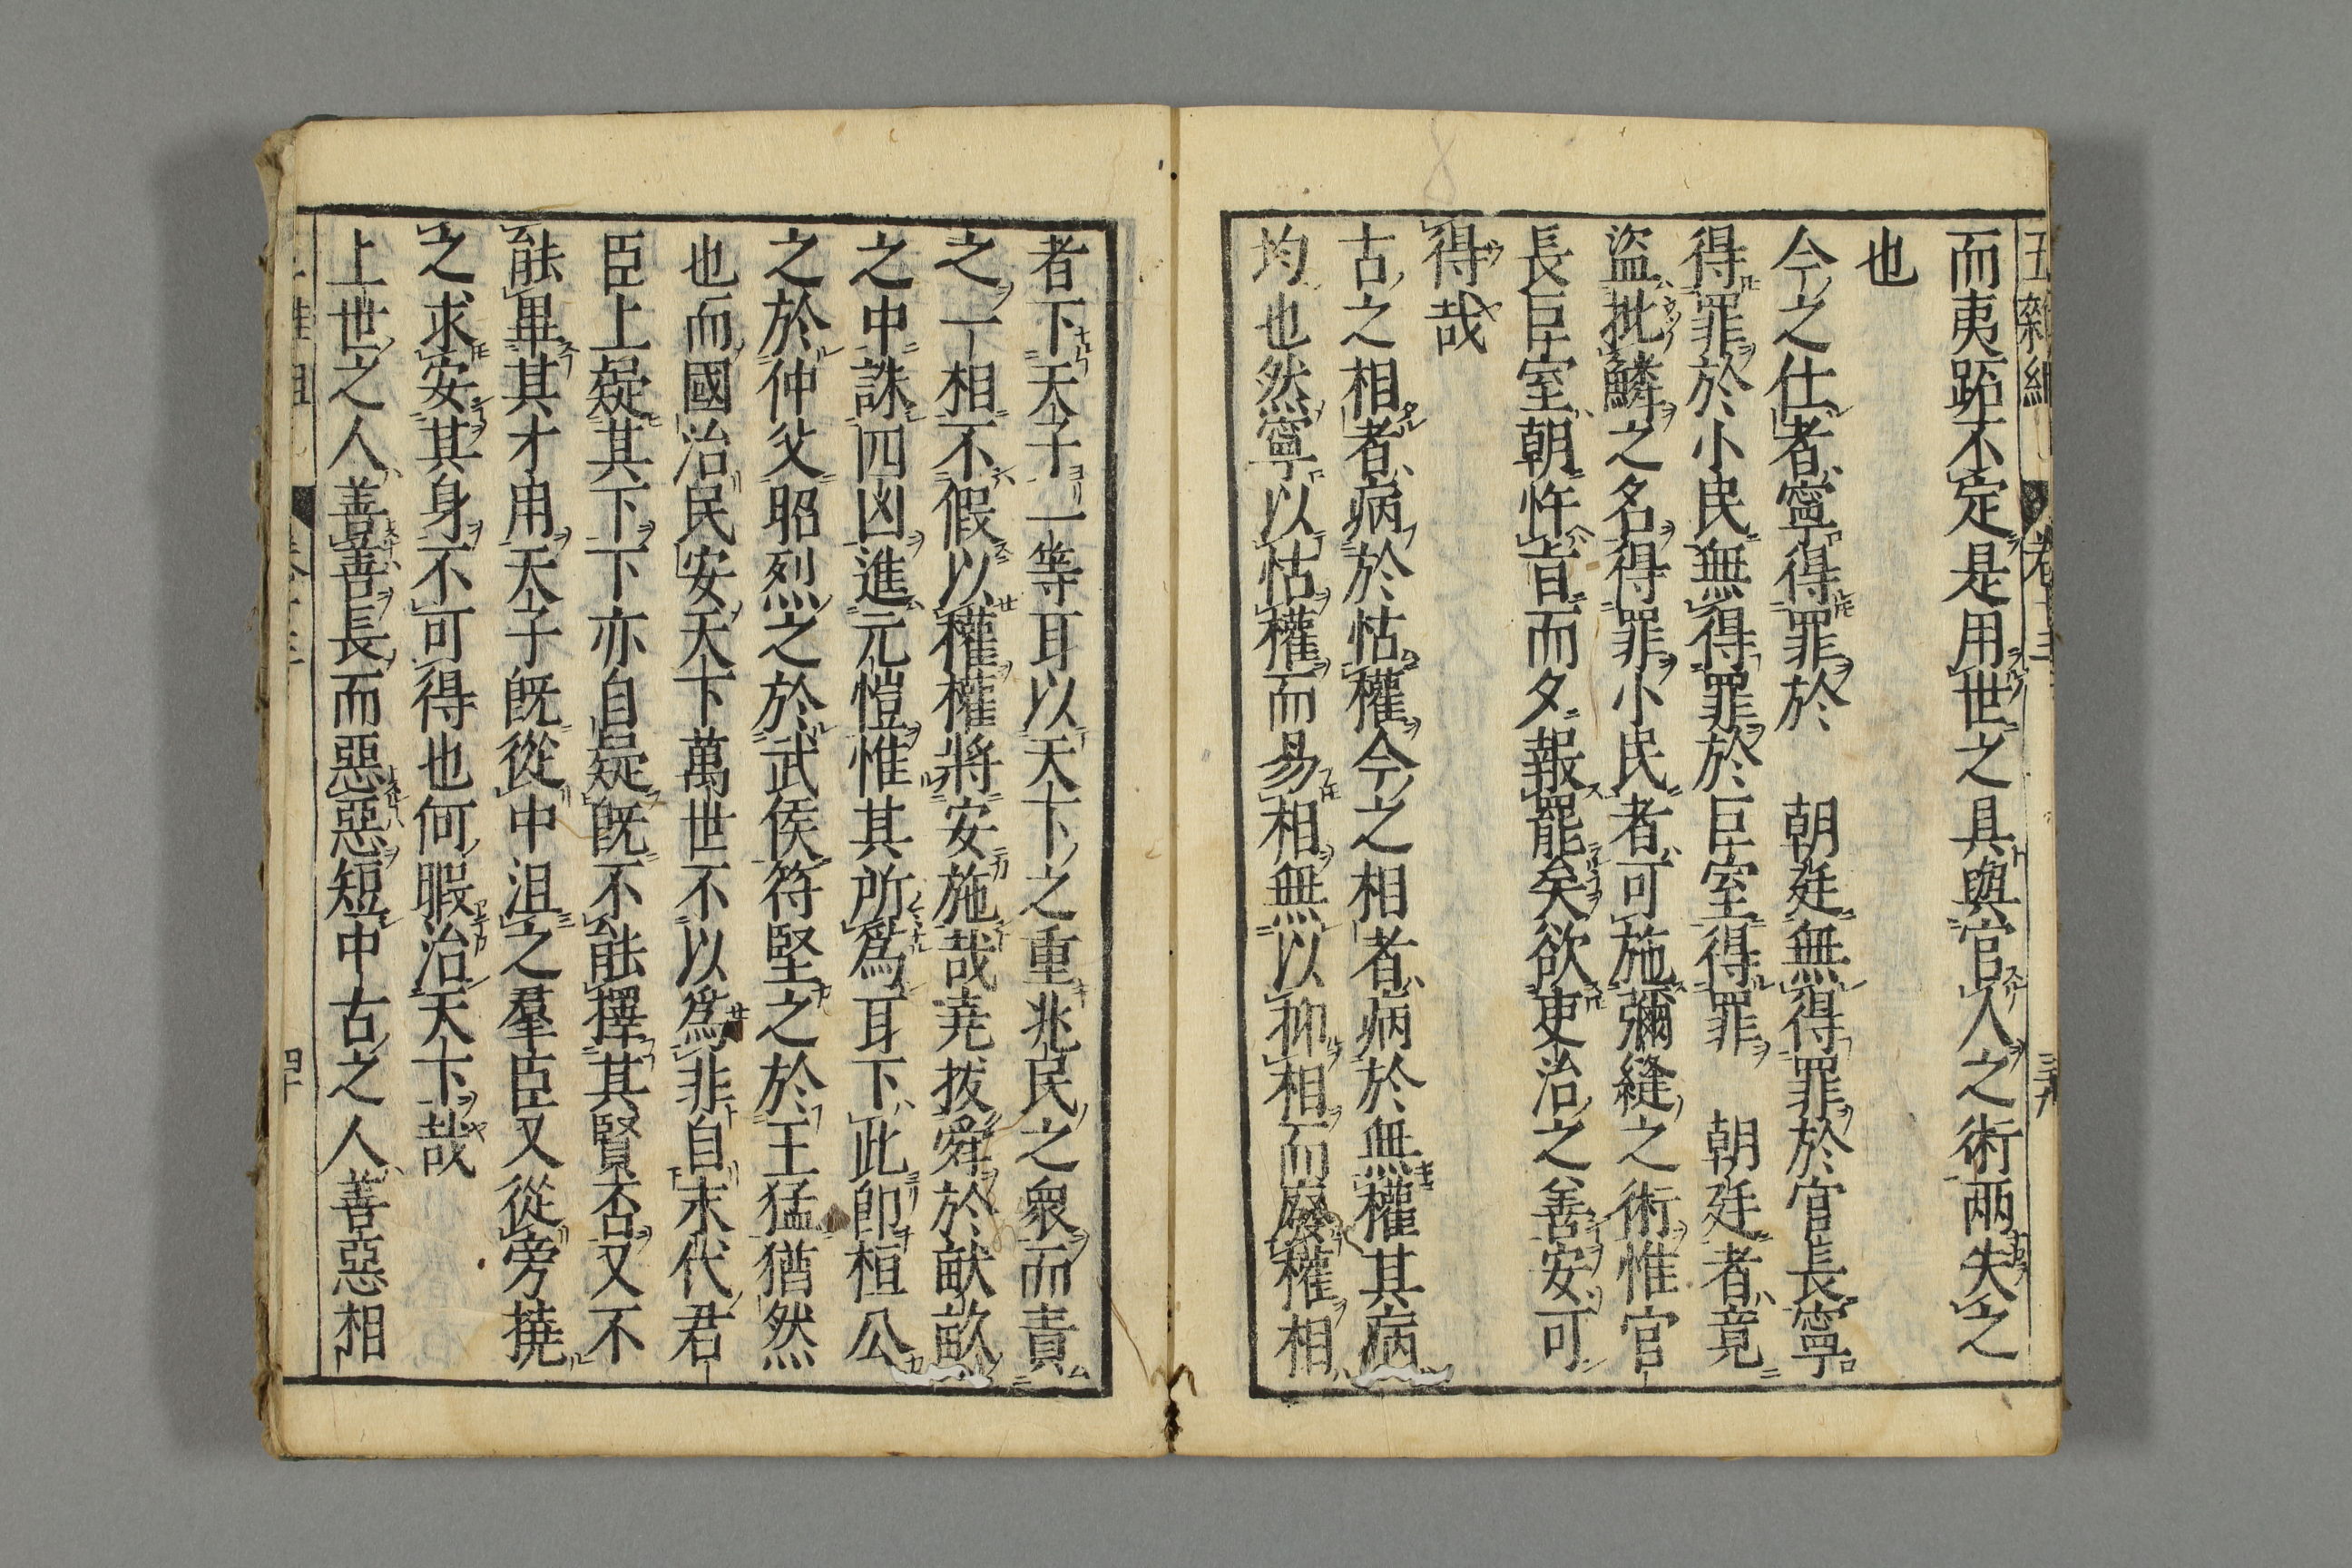 五雜組 卷十三 三十九
而夷跖不定是用世之具與官人之術兩失之
也
今之仕者寧得罪於 朝廷無得罪於官長寧
得罪於小民無得罪於巨室得罪 朝廷者竟
盜批鱗之名得罪小民者可施彌縫之術惟官
長巨室朝忤旨而夕報罷矣欲吏治之善安可
得哉
古之相者病於怙權今之相者病於無權其病
均也然寧以怙權而易相無以抑相而廢權相
者下天子一等耳以天下之重兆民之衆而責
之一相不假以權權將安施哉堯拔舜於畎畝
之中誅四凶進元愷惟其所爲耳下此卽桓公
之於仲父昭烈之於武侯符堅之於王猛猶然
也而國治民安天下萬世不以爲非自末代君
臣上疑其下下亦自疑旣不能擇其賢否又不
能畢其才用天子旣從中沮之羣臣又從旁撓
之求安其身不可得也何暇治天下哉
上世之人善善長而惡惡短中古之人善惡相
四十